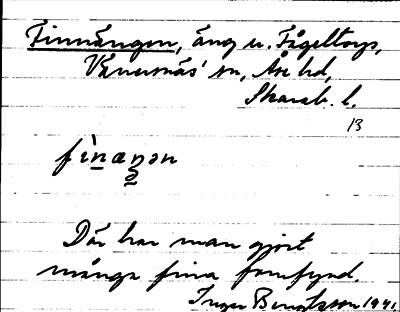 Finnängen, äng u. Fågeltorp,
Vänersnäs' sn, Åse hd,
Skarab. l.
13
fìnæŋən
Där har man gjort
många fina fornfynd.
Inger Bengtsson 1941